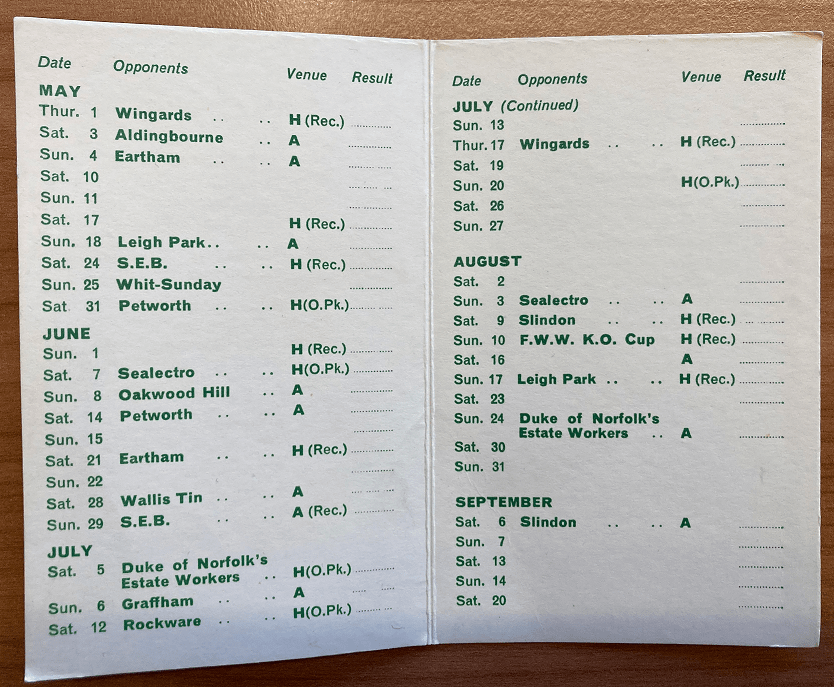 Date Opponents Venue Result
MAY
Thur. 1 Wingards .. .. H (Rec.) ............
Sat. 3 Aldingbourne .. A ............
Sun. 4 Eartham .. .. A ............
Sat. 10 ............
Sun. 11 ............
Sat. 17 H (Rec.) ............
Sun. 18 Leigh Park.. .. A ............
Sat. 24 S.E.B. .. .. H (Rec.) ............
Sun. 25 Whit-Sunday ............
Sat 31 Petworth .. .. H(O.Pk.) ............
JUNE
Sun. 1 H (Rec.) ............
Sat. 7 Sealectro .. .. H(O.Pk.) ............
Sun. 8 Oakwood Hill .. A ............
Sat. 14 Petworth .. .. A ............
Sun. 15 ............
Sat. 21 Eartham .. .. H (Rec.) ............
Sun. 22 ............
Sat. 28 Wallis Tin .. .. A ............
Sun. 29 S.E.B. .. .. A (Rec.) ............
JULY
Sat. 5 Duke of Norfolk's
Estate Workers .. H(O.Pk.) ............
Sun. 6 Graffham .. .. A ............
Sat. 12 Rockware .. .. H(O.Pk.) ............
Date Opponents Venue Result
JULY (Continued)
Sun. 13 ............
Thur. 17 Wingards .. .. H (Rec.) ............
Sat. 19 ............
Sun. 20 H(O.Pk.) ............
Sat. 26 ............
Sun. 27 ............
AUGUST
Sat. 2 ............
Sun. 3 Sealectro .. .. A ............
Sat. 9 Slindon .. .. H (Rec.) ............
Sun. 10 F.W.W. K.O. Cup H (Rec.) ............
Sat. 16 A ............
Sun. 17 Leigh Park .. .. H (Rec.) ............
Sat. 23 ............
Sun. 24 Duke of Norfolk's
Estate Workers .. A ............
Sat. 30
Sun. 31 ............
SEPTEMBER
Sat. 6 Slindon .. .. A ............
Sun. 7 ............
Sat. 13 ............
Sun. 14 ............
Sat. 20 ............